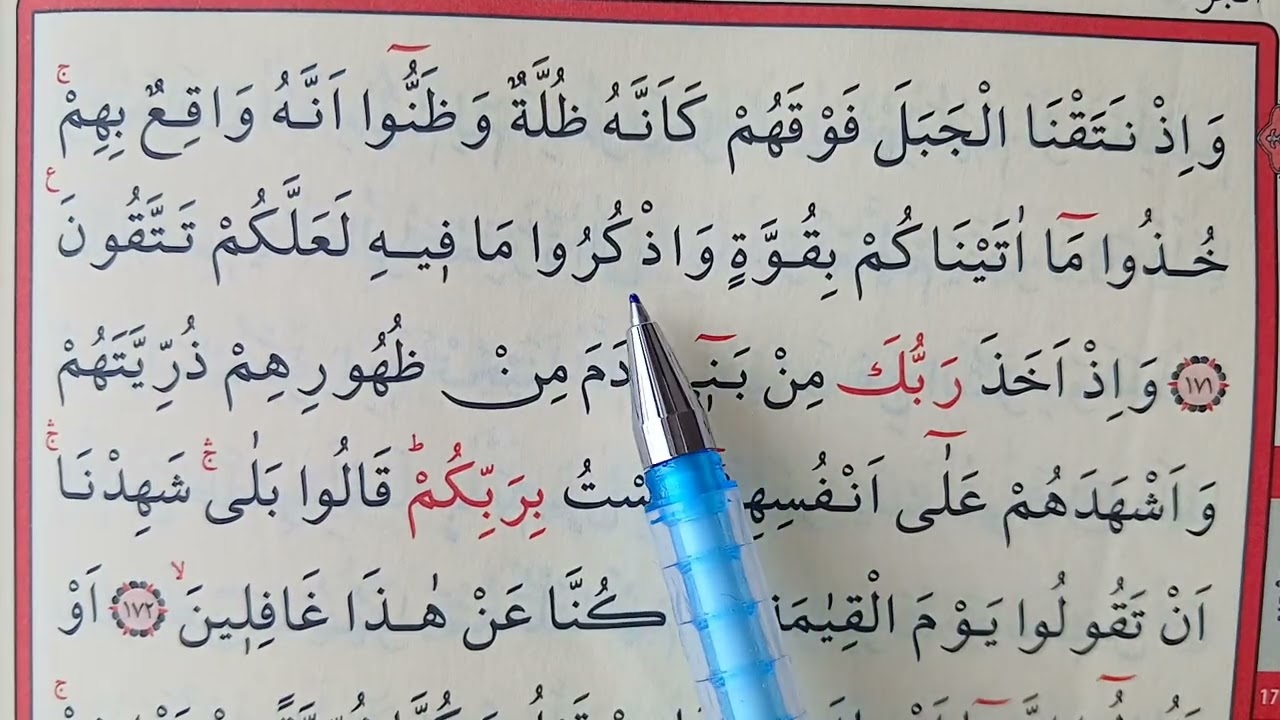 وَاِذْ نَتَقْنَا الْجَبَلَ فَوْقَهُمْ كَاَنَّهُ ظُلَّةٌ وَظَنُّٓوا اَنَّهُ وَاقِعٌ بِهِمْۚ
خُذُوا مَٓا اٰتَيْنَاكُمْ بِقُوَّةٍ وَاذْكُرُوا مَا ف۪يهِ لَعَلَّكُمْ تَتَّقُونَ ع
﴿١٧١﴾ وَاِذْ اَخَذَ رَبُّكَ مِنْ بَن۪ٓي مِنْ ظُهُورِهِمْ ذُرِّيَّتَهُمْ
وَاَشْهَدَهُمْ عَلٰٓى بِرَبِّكُمْۜ قَالُوا بَلٰىۚۛ شَهِدْنَاۚۛ
اَنْ تَقُولُوا يَوْمَ كُنَّا عَنْ هٰذَا غَافِل۪ينَۙ ﴿١٧٢﴾ اَوْ